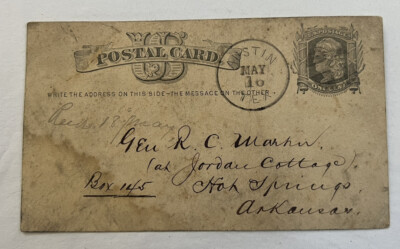 U S
POSTAL CARD.
WRITE THE ADDRESS ON THIS SIDE-THE MESSAGE ON THE OTHER
STIN
MAY
10
TEX
ONE CENT
Gen R. C.
(at Jordan Cottage).
Box 145
Hot Springs.
Arkansas.